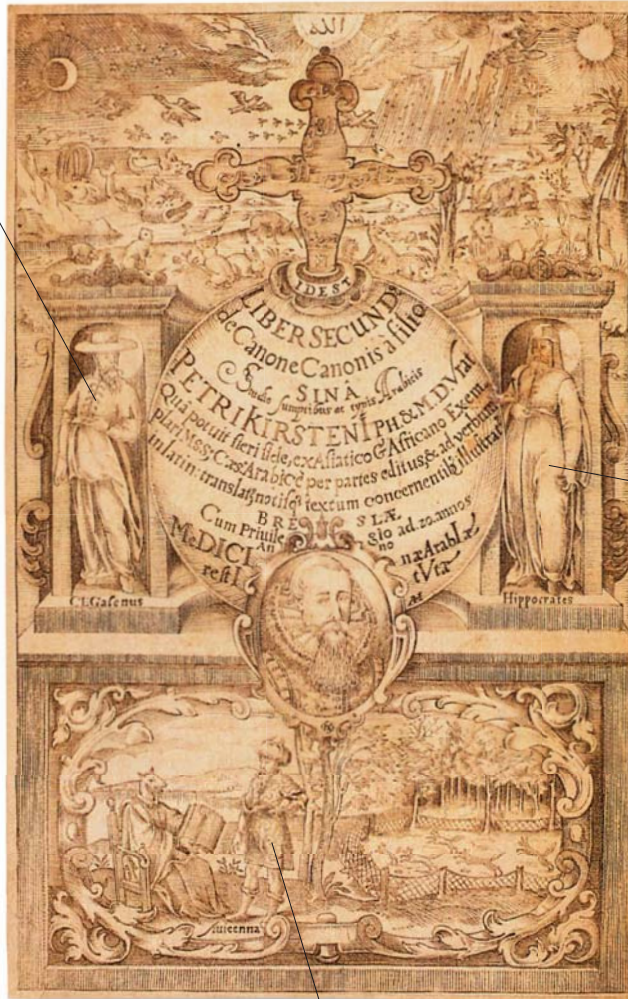 الله
ID EST
LIBER SECUNDꝰ
de Canone Canonis a filio
SINÂ
Studio sumptibus ac typis Arabicis
PETRI KIRSTENI PH. & M. D Vrat
Quâ potuit fieri fide, ex Asiatico & Africano Exem
plari M.S.S. Cæs: Arabicè per partes editus, & ad verbum
in latin: translatꝰ notisqꝫ textum concernentibꝰ illustratꝰ
BRE SLÆ
Cum Privile gio ad 20. annos
An no
MeDICI næ ArabIæ
rest I tVtæ
Cl. Galenus
Hippocrates
Auicenna